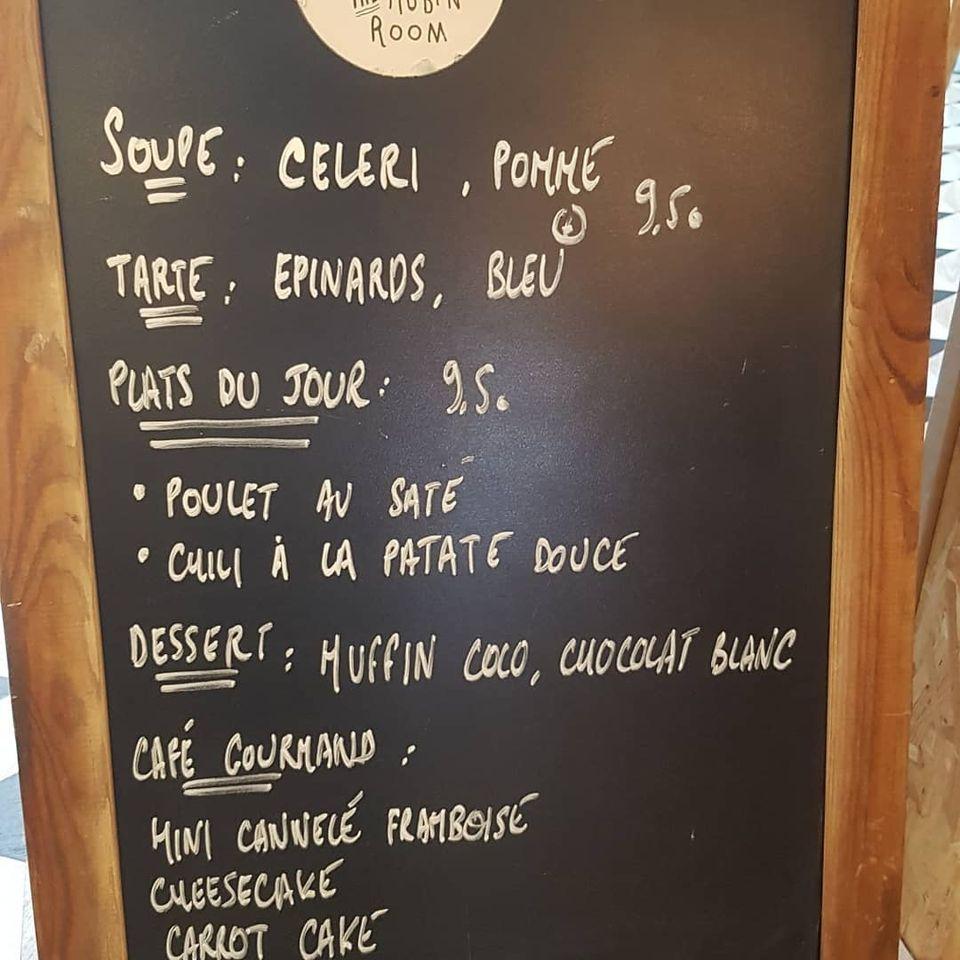 ROOM
SOUPE : CELERI , POMME
9.50
TARTE : EPINARDS, BLEU
PLATS DU JOUR : 9.50
• POULET AU SATÉ
• CHILI À LA PATATE DOUCE
DESSERT : MUFFIN COCO, CHOCOLAT BLANC
CAFÉ GOURMAND :
MINI CANNELÉ FRAMBOISE
CHEESECAKE
CARROT CAKE